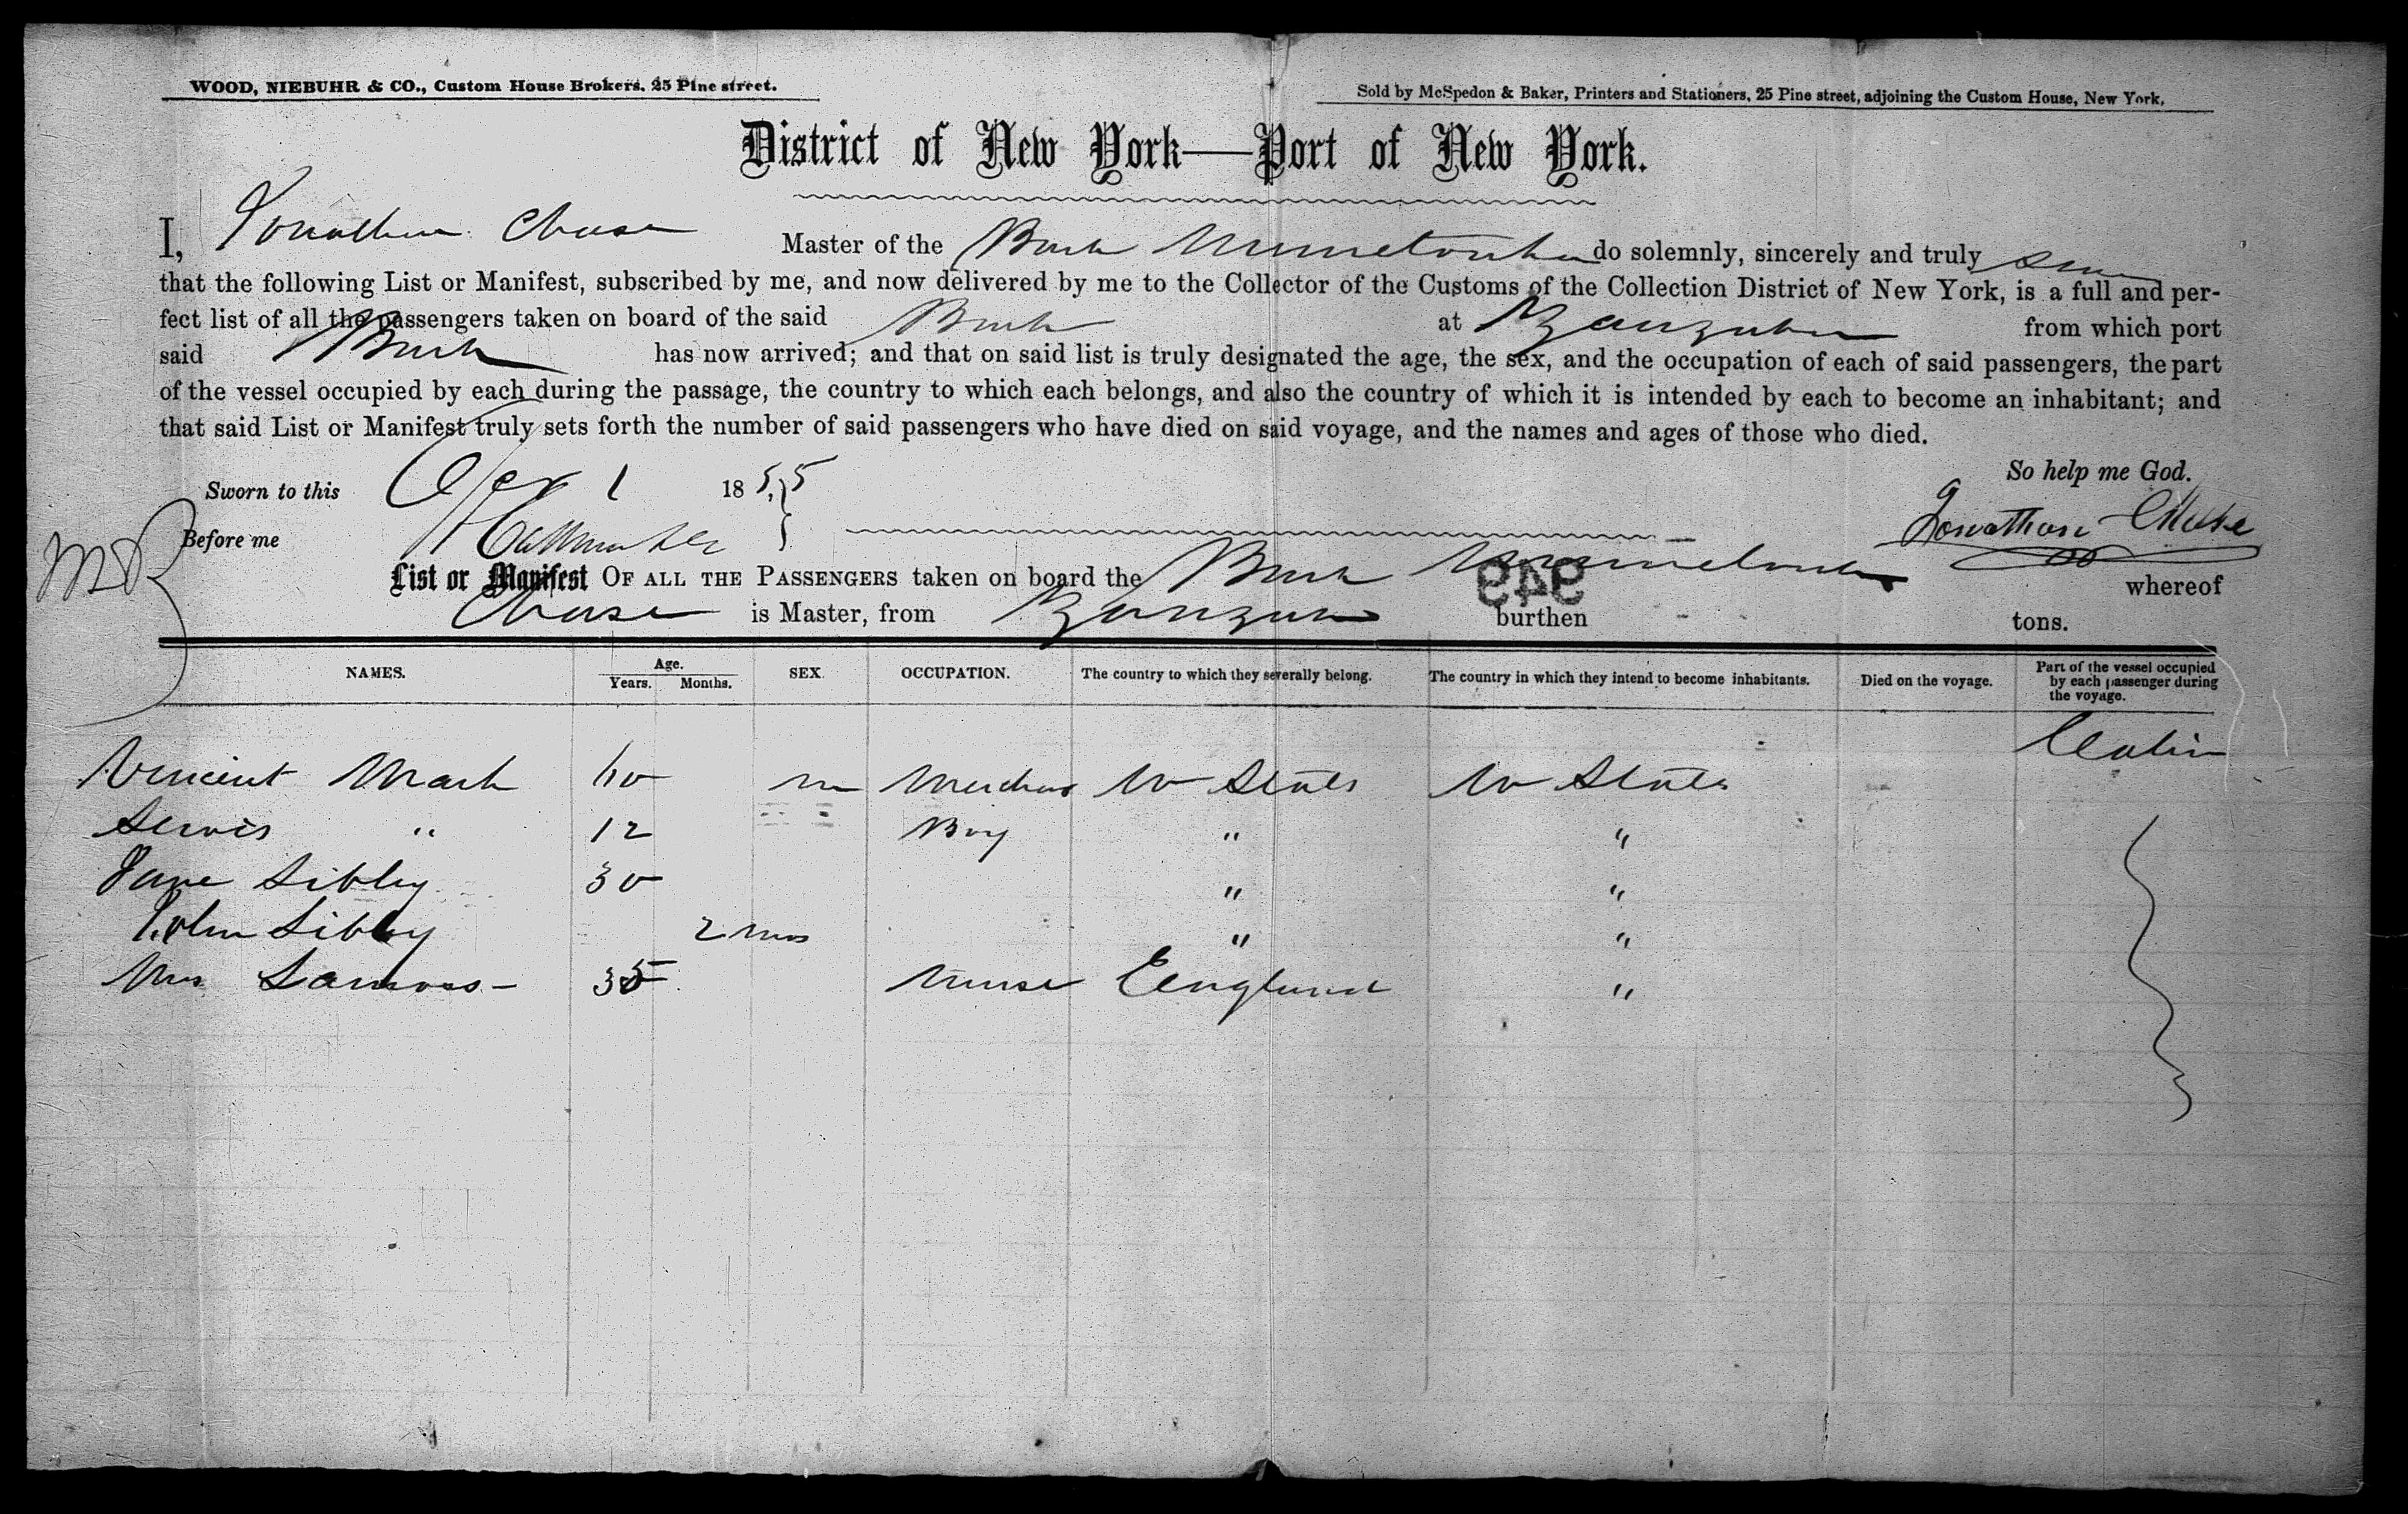 WOOD, NIEBUHR & CO., Custom House Brokers, 25 Pine street.
Sold by McSpedon & Baker, Printers and Stationers, 25 Pine street, adjoining the Custom House, New York,
District of New York—Port of New York.
I, Jonathan Chase Master of the Bark Minnetonka do solemnly, sincerely and truly
that the following List or Manifest, subscribed by me, and now delivered by me to the Collector of the Customs of the Collection District of New York, is a full and per-
fect list of all the passengers taken on board of the said Bark at Zanzabar from which port
said Bark has now arrived; and that on said list is truly designated the age, the sex, and the occupation of each of said passengers, the part
of the vessel occupied by each during the passage, the country to which each belongs, and also the country of which it is intended by each to become an inhabitant; and
that said List or Manifest truly sets forth the number of said passengers who have died on said voyage, and the names and ages of those who died.
So help me God.
Sworn to this 1 1855
Jonathan Chase
Before me
List or Manifest OF ALL THE PASSENGERS taken on board the Bark Minnetonka whereof
949
Chase is Master, from Zanzabar burthen tons.
NAMES. Age. Years. Months. SEX. OCCUPATION. The country to which they severally belong. The country in which they intend to become inhabitants. Died on the voyage. Part of the vessel occupied by each passenger during the voyage.
Cabin
Vincent Mark m U States U States
" 12 Boy " "
Jane Libby 30 " "
John Libby 2 mos " "
Mrs 35 Nurse England "